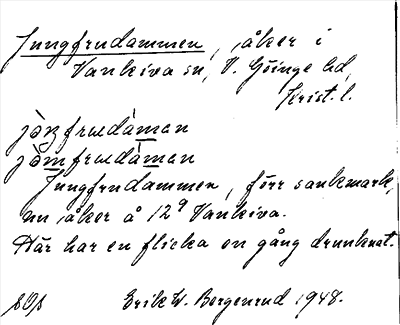 Jungfrudammen, åker i
Vankiva sn, V. Göinge hd,
Krist. l.
jòŋfrudàman
jòmfrudàman
Jungfrudammen, förr sankmark,
nu åker å 12⁹ Vankiva.
Här har en flicka en gång drunknat.
Erik W. Bergenrud 1948.